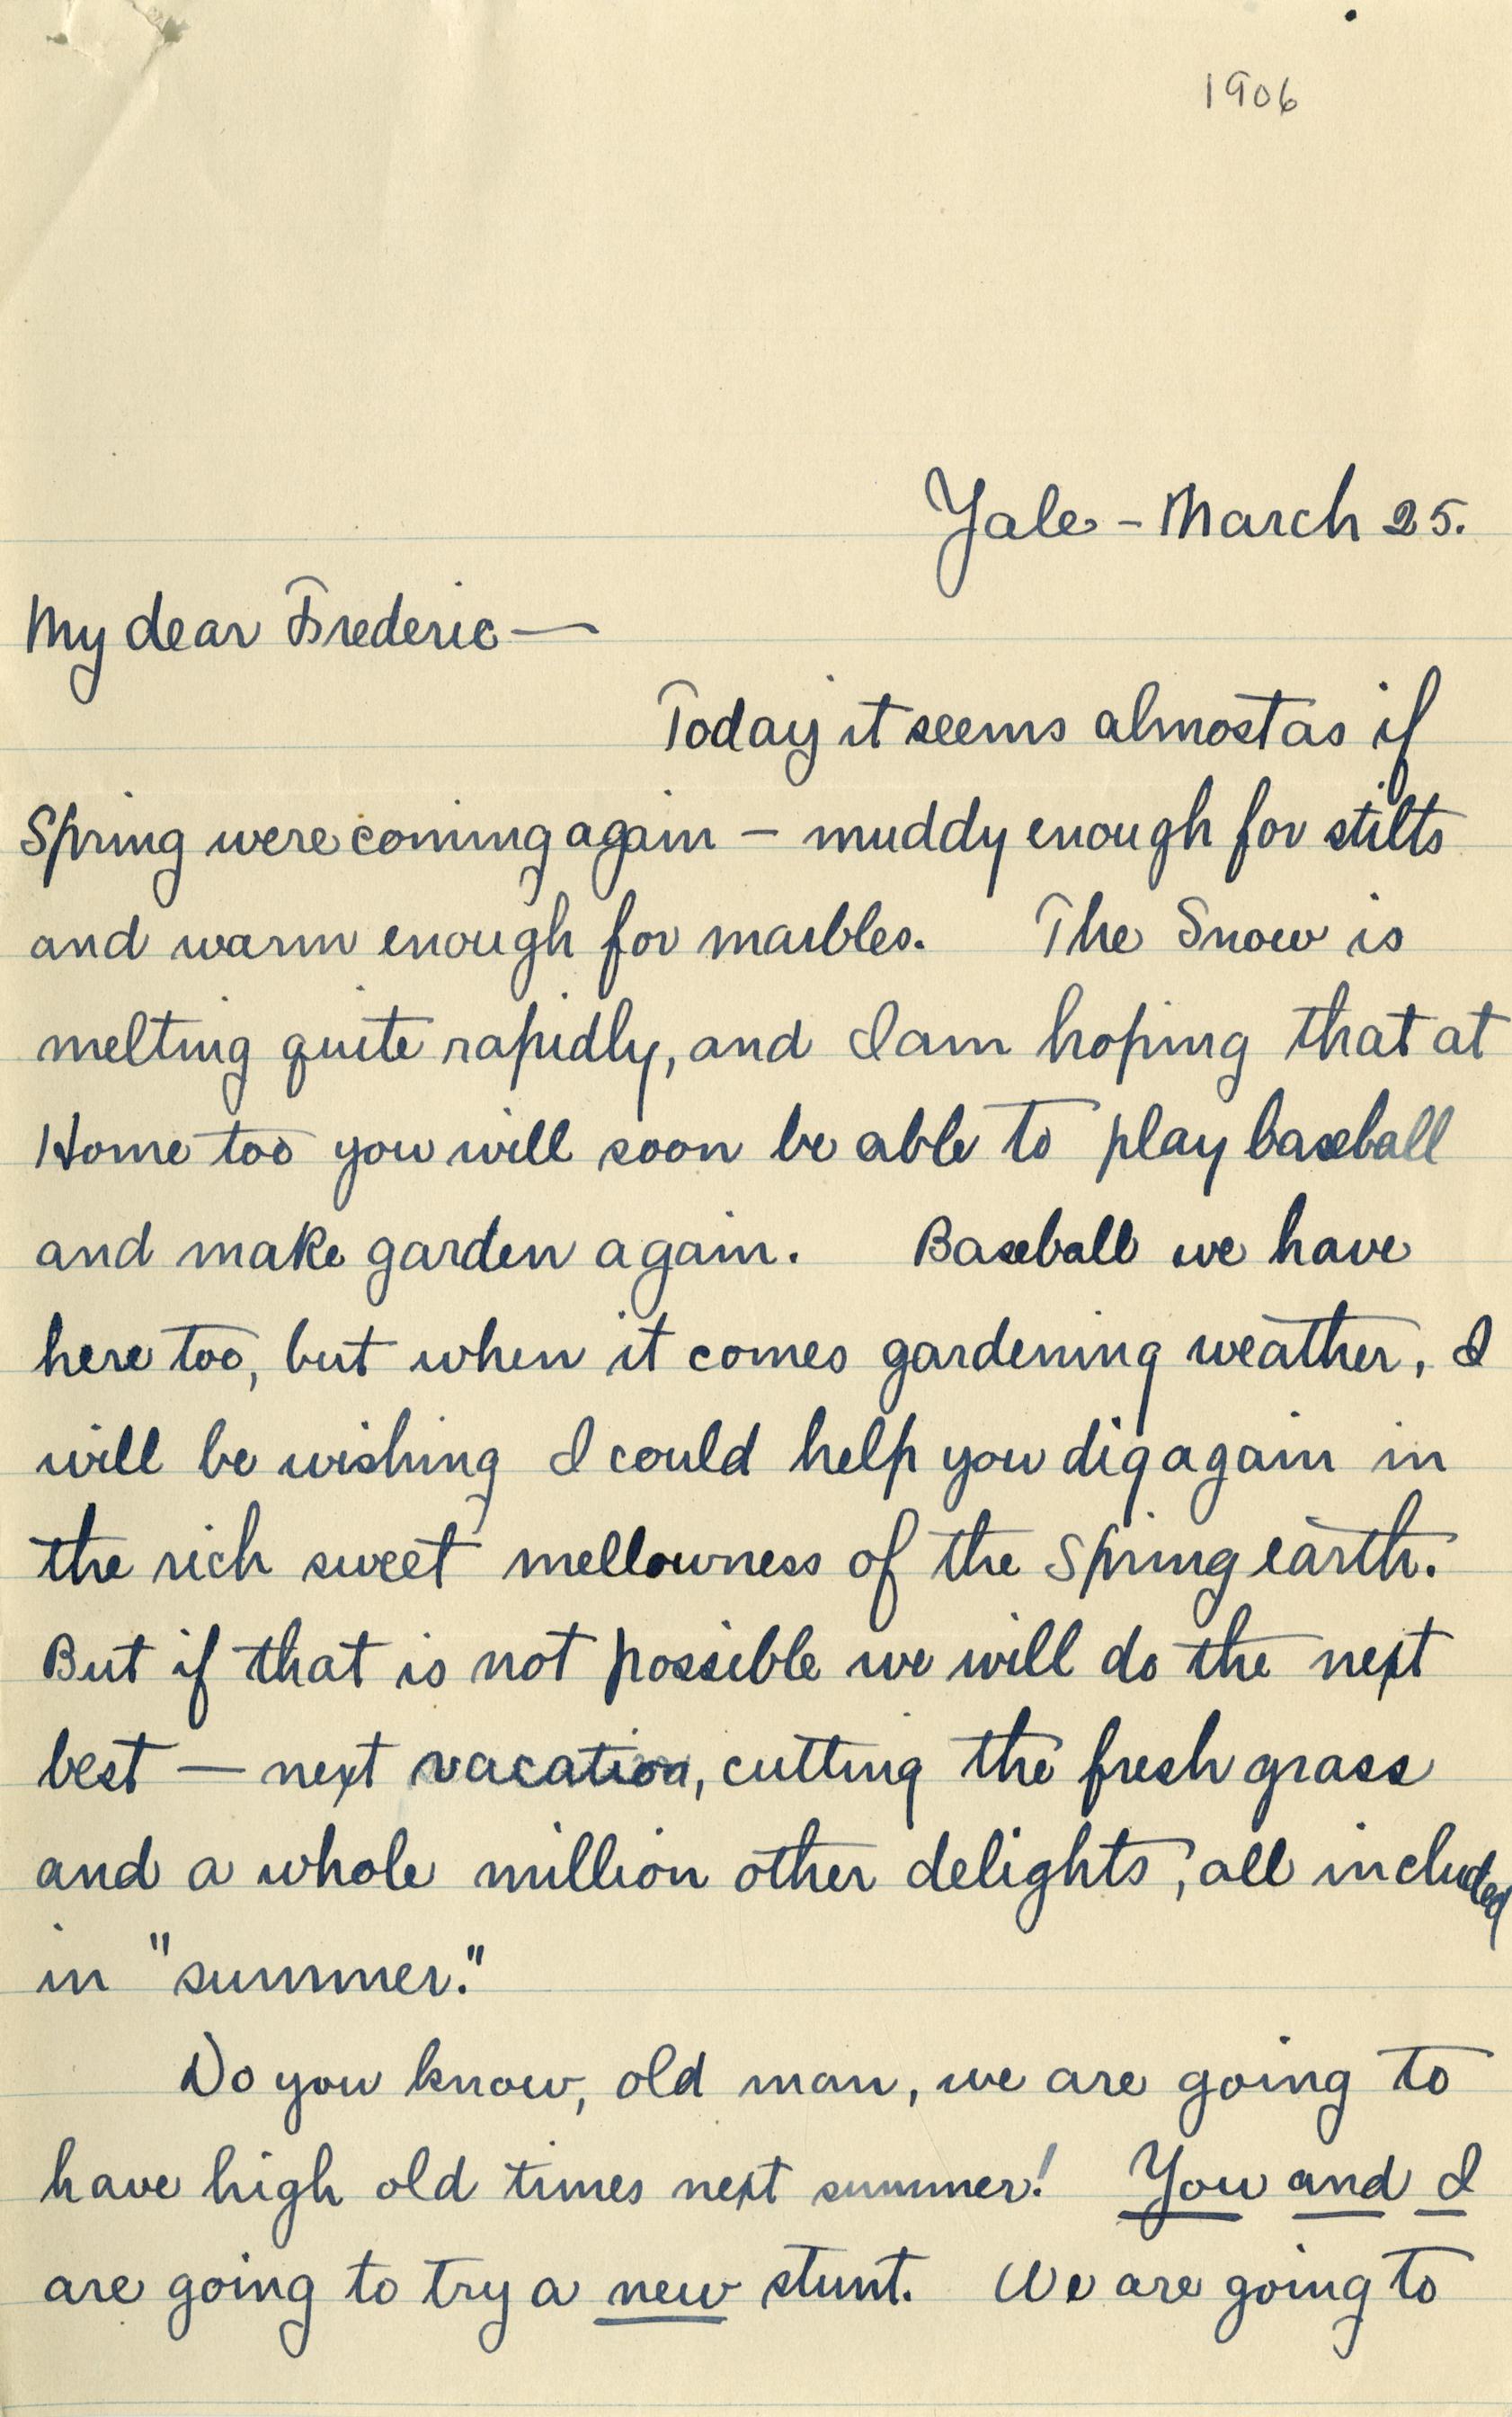 1906
Yale - March 25.
My dear Frederic —
Today it seems almost as if
Spring were coming again - muddy enough for stilts
and warm enough for marbles. The Snow is
melting quite rapidly, and I am hoping that at
Home too you will soon be able to play baseball
and make garden again. Baseball we have
here too, but when it comes gardening weather, I
will be wishing I could help you dig again in
the rich sweet mellowness of the Spring earth.
But if that is not possible we will do the next
best — next vacation, cutting the fresh grass
and a whole million other delights, all included
in "summer."
Do you know, old man, we are going to
have high old times next summer! You and I
are going to try a new stunt. We are going to